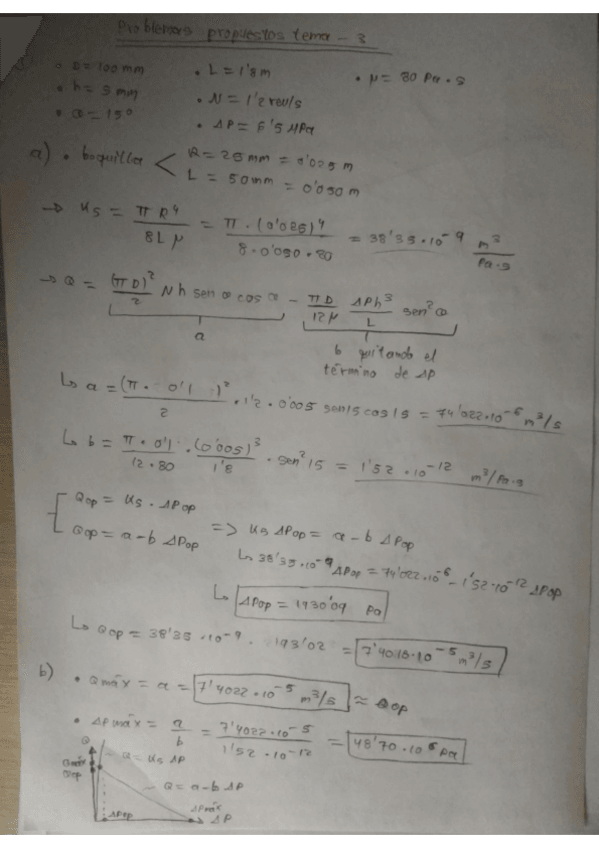 Problemas propuestos tema - 3
• D = 100 mm • L = 1'8 m • μ = 80 Pa · s
• h = 5 mm • N = 1'2 rev/s
• α = 15º • ΔP = 5'5 MPa
a) • boquilla < R = 25 mm = 0'025 m
L = 50 mm = 0'050 m
→ Ks = π R⁴ / 8 L μ = π · (0'025)⁴ / 8 · 0'050 · 80 = 38'35 · 10⁻⁹ m³ / Pa·s
→ Q = (π D)² / 2 N h sen α cos α - π D / 12 μ ΔP h³ / L sen² α
a
b quitando el
término de ΔP
↳ a = (π · 0'1)² / 2 · 1'2 · 0'005 sen 15 cos 15 = 74'022 · 10⁻⁶ m³/s
↳ b = π · 0'1 / 12 · 80 · (0'005)³ / 1'8 · sen² 15 = 1'52 · 10⁻¹² m³/Pa·s
Qop = Ks · ΔPop
Qop = a - b ΔPop => Ks ΔPop = a - b ΔPop
↳ 38'35 · 10⁻⁹ ΔPop = 74'022 · 10⁻⁶ - 1'52 · 10⁻¹² ΔPop
↳ ΔPop = 1930'09 Pa
↳ Qop = 38'35 · 10⁻⁹ · = 7'4018 · 10⁻⁵ m³/s
b) • Qmáx = a = 7'4022 · 10⁻⁵ m³/s ≈ Qop
• ΔPmáx = a / b = 7'4022 · 10⁻⁵ / 1'52 · 10⁻¹² = 48'70 · 10⁶ Pa
Q
Qmáx
Qop
Q = Ks ΔP
Q = a - b ΔP
ΔPop
ΔPmáx
ΔP